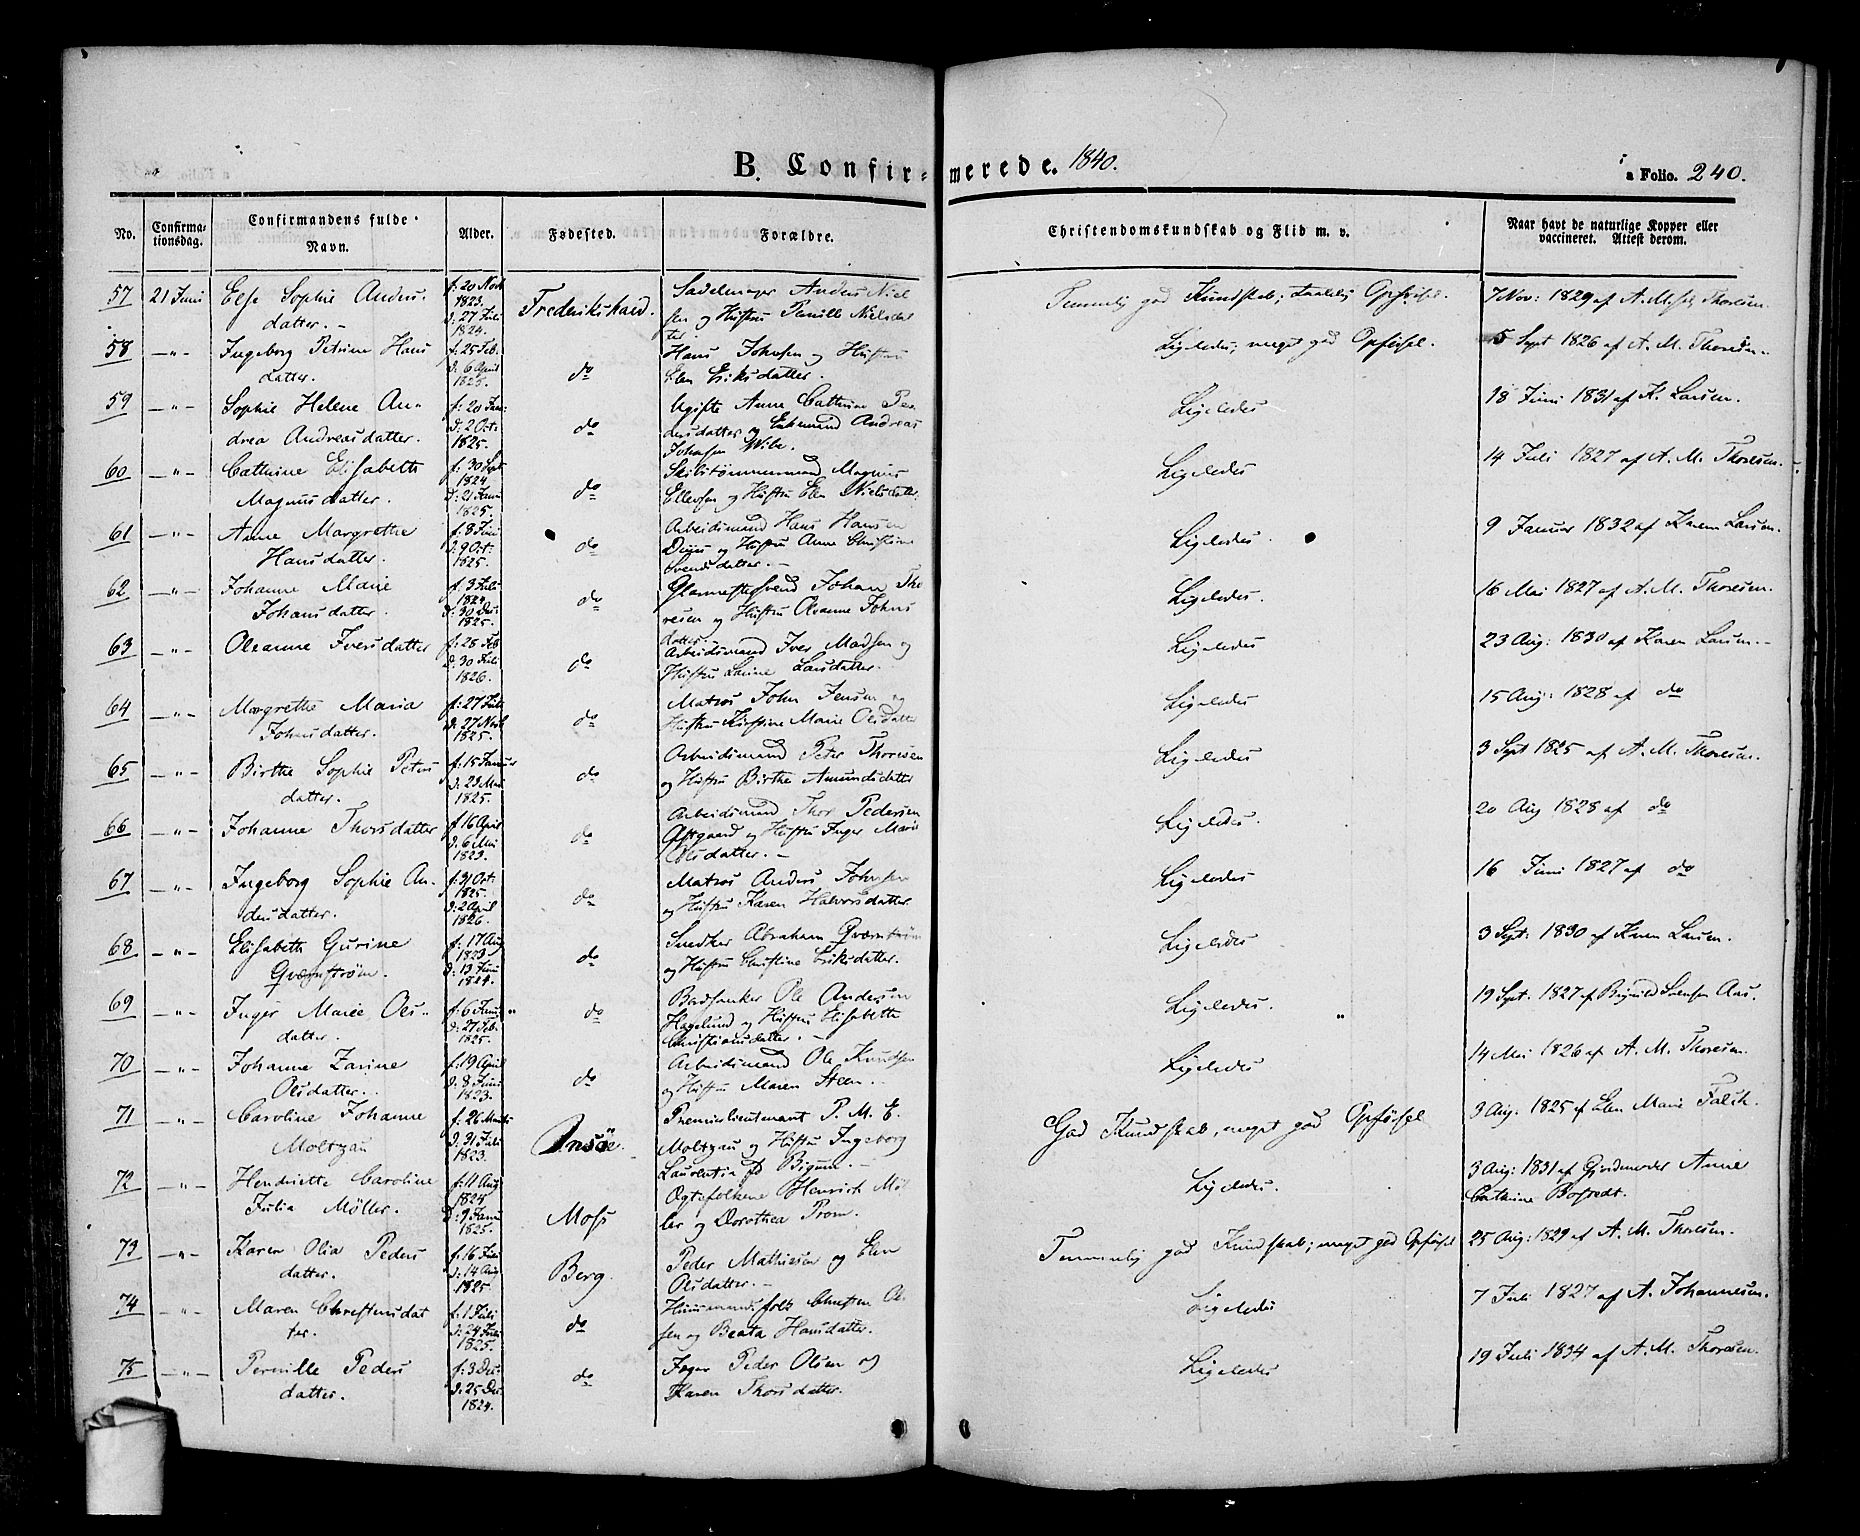 B. Confir- merede. 1840.
a Folio. 240.
No.
Confirma-
tionsdag.
Confirmandens fulde
Navn.
Alder.
Fødested.
Forældre.
Christendomskundskab og Flid m. v.
Naar havt de naturlige Kopper eller
vaccineret. Attest derom.
57 21 Juni Else Sophie Anders- f: 20 Novb Frederikshald. Sadelmager Anders Niel Temmelig god Kundskab; taalelig Opførsel. 7 Nov: 1829 af A. M. Thoresen
datter. 1823. d: 27 Juli 1824. sen og Hustru Pernille Nielsdat
ter.
58 -"- Ingeborg Petrine Hans f: 25 Feb. do Hans Johnsen og Hustru Ligeledes; meget god Opførsel. 5 Sept 1826 af A. M. Thoresen.
datter. d: 6 April 1825. Elen Eriksdatter.
59 -"- Sophie Helene An- f: 20 Jan: do Ugifte Anne Cathrine Pe- Ligeledes 18 Juni 1831 af K. Larsen.
drea Andreasdatter. d: 2 Oct: 1825. dersdatter og Enkemand Andreas
Johnsen Wibe.
60 -"- Cathrine Elisabeth f: 30 Sept 1824 do Skibstømmermand Magnus Ligeledes 14 Juli 1827 af A. M. Thoresen.
Magnusdatter. d: 21 Janu 1825. Ellevsen og Hustru Elen Nielsdatter.
61 -"- Anne Margrethe f: 8 Juni do Arbeidsmand Hans Hansen Ligeledes. 9 Januar 1832 af Karen Larsen.
Hansdatter. d: 9 Oct: 1825. og Hustru Anne Christine
Svendsdatter. -
62 -"- Johanne Marie f: 3 Juli 1824 do Glarmestersvend Johan Tho Ligeledes. 16 Mai 1827 af A. M. Thoresen.
Johansdatter. d: 30 Dec: 1825. resen og Hustru Oleanne Johns
datter.
63 -"- Oleanne Iversdatter f: 28 Feb do Arbeidsmand Iver Madsen og Ligeledes 23 Aug: 1830 af Karen Larsen. -
d: 30 Juli 1826. Hustru Larine Larsdatter. -
64 -"- Margrethe Maria f: 27 Juli do Matros John Jensen og Ligeledes 15 Aug: 1828 af do
Johnsdatter. d: 27 Novb 1825. Hustru Kirstine Marie Olsdatter
65 -"- Birthe Sophie Peters f: 15 Januar do Arbeidsmand Peter Thoresen Ligeledes 3 Sept 1825 af A. M. Thoresen.
datter. d: 23 Mai 1825. og Hustru Birthe Amundsdatter
66 -"- Johanne Thorsdatter f: 16 April do Arbeidsmand Thor Pedersen Ligeledes. 20 Aug 1828 af do
d: 6 Mai 1823. Østgaard og Hustru Inger Marie
Olsdatter. -
67 -"- Ingeborg Sophie An- f: 31 Oct: 1825. do Matros Anders Johnsen Ligeledes 16 Juni 1827 af do
dersdatter. d: 2 April 1826. og Hustru Karen Halvorsdatter
68 -"- Elisabeth Gurine f: 17 Aug 1823 do Snedker Abraham Qværnstrøm Ligeledes 3 Sept: 1830 af Karen Larsen.
Qværnstrøm. d: 13 Juni 1824. og Hustru Christine Eriksdatter.
69 -"- Inger Marie Ols- f: 6 Januar do Ole Andersen Ligeledes. 19 Sept. 1827 af Svensen Aas.
datter. d: 27 Feb. 1825. Hagelund og Hustru Elisabette
Christiansdatter. -
70 -"- Johanne Zarine f: 19 April do Arbeidsmand Ole Knudsen Ligeledes 14 Mai 1826 af A. M. Thoresen.
Olsdatter. d: 8 Juni 1823. og Hustru Maren Steen. -
71 -"- Caroline Johanne f: 26 Marts Onsöe. Premierlieutenant P. M. E. God Kundskab, meget god Opførsel 3 Aug. 1825 af Elen Marie Falch.
Moltzau d: 31 Juli 1823. Moltzau og Hustru Ingeborg
Laurentia fd Bigum. -
72 -"- Henriette Caroline f: 11 Aug 1824 Moss Ægtefolkene Henrich Møl Ligeledes. 3 Aug: 1831 af Gjordemoder Anne
Julia Møller. d: 9 Janu 1825. ler og Dorothea Prom. Cathrine
73 -"- Karen Olia Peders f: 16 Juli Berg. Peder Mathiesen og Elen Temmelig god Kundskab; meget god Opførsel 25 Aug: 1829 af A. M. Thoresen.
datter. d: 14 Aug 1825. Olsdatter. -
74 -"- Maren Christensdat f: 1 Juli do Huusmandsfolk Christen Ol Ligeledes 7 Juli 1827 af A. Johannesen.
ter. d: 24 Juli 1825. sen og Beata Hansdatter.
75 -"- Pernille Peders f: 3 Dec: do Jæger Peder Olsen og Ligeledes 19 Juli 1834 af A. M. Thoresen.
datter. d: 25 Dec: 1824. Karen Thorsdatter.